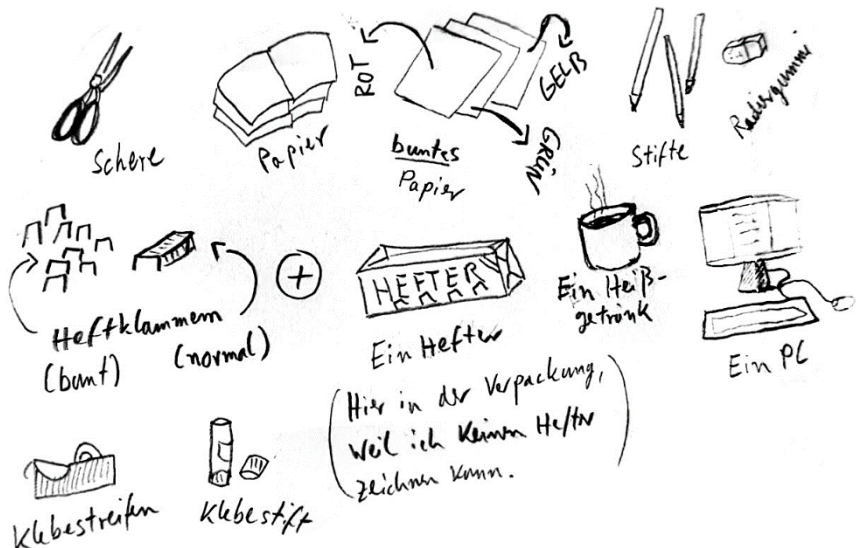 Schere
Papier
ROT
GELB
GRÜN
buntes
Papier
Stifte
Radiergummi
Heftklammern
(bunt)
(normal)
+
HEFTER
Ein Hefter
(Hier in der Verpackung,
weil ich keinen Hefter
zeichnen kann.)
Ein Heiß-
getränk
Ein PC
Klebestreifen
Klebestift